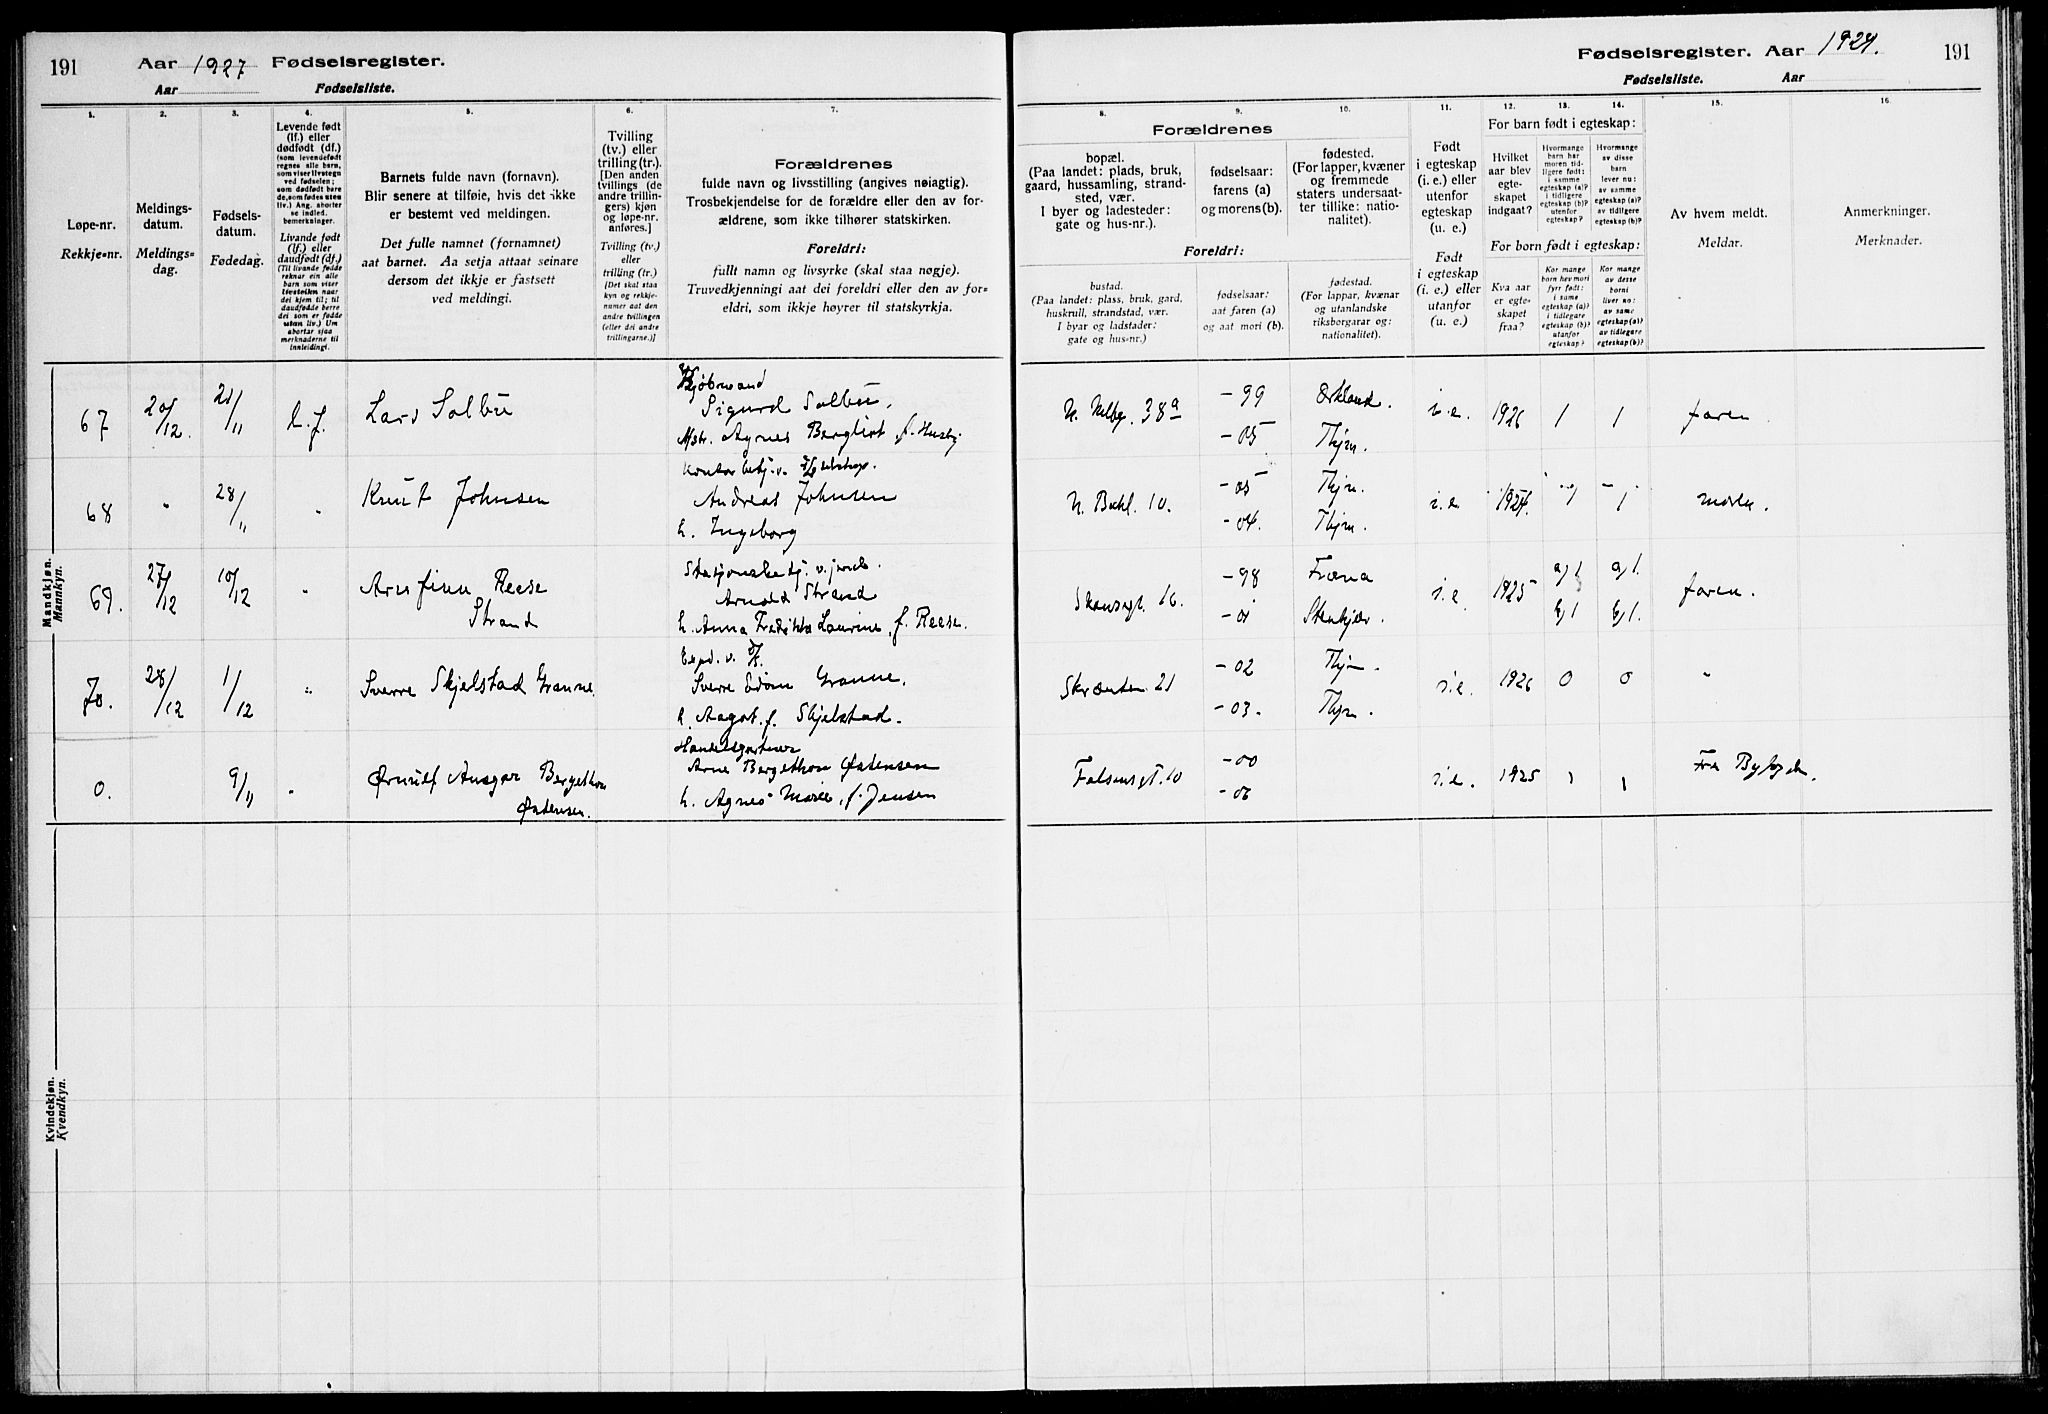 191
Aar 1927 Fødselsregister.
Aar Fødselsliste.
1. 2. 3. 4. 5. 6. 7.
Løpe-nr.
Rekkje-nr.
Meldings-
datum.
Meldings-
dag.
Fødsels-
datum.
Fødedag.
Levende født
(lf.) eller
dødfødt (df.)
(som levendefødt
regnes alle barn,
som viser livstegn
ved fødselen;
som dødfødt bare
de, som fødes uten
liv.) Ang. aborter
se indled.
bemerkninger.
Livande født
(lf.) eller
daudfødt (df.)
(Til livande fødde
reknar ein alle
born som viser
livsteikn naar
dei kjem til; til
daudfødde berre
dei som er fødde
utan liv.) Um
abortar sjaa
merknaderne til
innleidingi.
Barnets fulde navn (fornavn).
Blir senere at tilføie, hvis det ikke
er bestemt ved meldingen.
Det fulle namnet (fornamnet)
aat barnet. Aa setja attaat seinare
dersom det ikkje er fastsett
ved meldingi.
Tvilling
(tv.) eller
trilling (tr.).
[Den anden
tvillings (de
andre trillin-
gers) kjøn
og løpe-nr.
anføres.]
Tvilling (tv.)
eller
trilling (tr.)
[Det skal staa
kyn og rekkje-
numer aat den
andre tvillingen
(eller dei andre
trillingarne.)]
Forældrenes
fulde navn og livsstilling (angives nøiagtig).
Trosbekjendelse for de forældre eller den av for-
ældrene, som ikke tilhører statskirken.
Foreldri:
fullt namn og livsyrke (skal staa nøgje).
Truvedkjenningi aat dei foreldri eller den av for-
eldri, som ikkje høyrer til statskyrkja.
Mandkjøn.
Mannkyn.
67 20/12. 21/11 l.f. Lars Solbu
Kjøbmand
Sigurd Solbu.
Agnes Bergliot f. Husby
68 " 28/11 " Knut Johnsen
Andreas Johnsen
h. Ingeborg
69. 27/12 10/12 " Arnfinn Reese
Strand
Arnold Strand
h. Anna Fredrikke Laurine, f. Reese.
70. 28/12 1/12 " Sverre Skjelstad Granne.
Sverre Edøm Granne.
h. Aagot f. Skjelstad.
0. 9/11 " Ørnulf Ansgar Bergethon
Østensen.
Handelsgartner
Arne Bergethon Østensen
h. Agnes Marie, f. Jensen
Kvindekjøn.
Kvendkyn.
Fødselsregister. Aar 1927. 191
Fødselsliste. Aar
8. 9. 10. 11. 12. 13. 14. 15. 16.
Forældrenes
bopæl.
(Paa landet: plads, bruk,
gaard, hussamling, strand-
sted, vær.
I byer og ladesteder:
gate og hus-nr.).
fødselsaar:
farens (a)
og morens (b).
fødested.
(For lapper, kvæner
og fremmede
staters undersaat-
ter tillike: natio-
nalitet).
Foreldri:
bustad.
(Paa landet: plass, bruk, gard,
huskrull, strandstad, vær.
I byar og ladstader:
gate og hus-nr.)
fødselsaar:
aat faren (a)
og aat mori (b).
fødestad.
(For lappar, kvænar
og utanlandske
riksborgarar og:
nationalitet).
Født
i egteskap
(i. e.) eller
utenfor
egteskap
(u. e.)
Født
i egteskap
(i. e.) eller
utanfor
(u. e.)
For barn født i egteskap:
Hvilket
aar blev
egte-
skapet
indgaat?
Hvormange
barn har
moren tid-
ligere født:
i samme
egteskap (a)?
i tidligere
egteskap (b)?
utenfor
egteskap?
Hvormange
av disse
barn
lever nu:
av samme
egteskap (a)?
av tidligere
egteskap (b)?
For born født i egteskap:
Kva aar
er egte-
skapet
fraa?
Kor mange
born hev mori
fyrr født:
i same
egteskap (a)?
i tidlegare
egteskap (b)?
utanfor
egteskap?
Kor mange
av desse
borni
liver no:
av same
egteskap (a)?
av tidlegare
egteskap (b)?
Av hvem meldt.
Meldar.
Anmerkninger.
Merknader.
38a - 99 Orkland. i.e. 1926 1 1 faren
- 05 Thjm.
N. Bakl. 10. - 05 Thjm. i.e. 1927. moren.
- 04. Thjm.
Skansegt. 16. - 98 Fræna i.e. 1925 a) 1 a) 1. faren.
- 01 Stenkjær. b) 1 b) 1.
Skrænten 21 - 02 Thjm. i.e. 1926 0 0 "
- 03. Thjm.
Falsensgt. 10 - 00 i.e. 1925 1 1
- 06